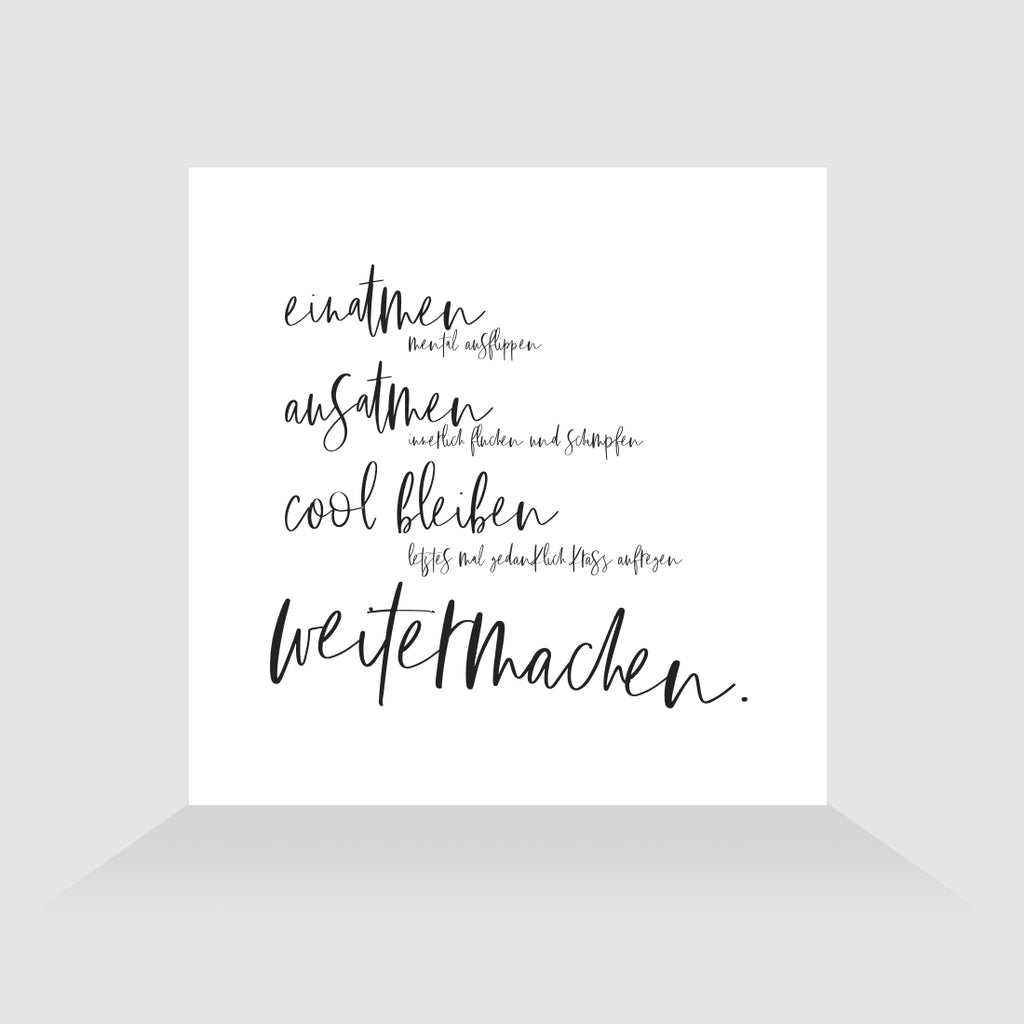 einatmen
mental ausflippen
ausatmen
innerlich fluchen und schimpfen
cool bleiben
letztes mal gedanklich krass aufregen
weitermachen.